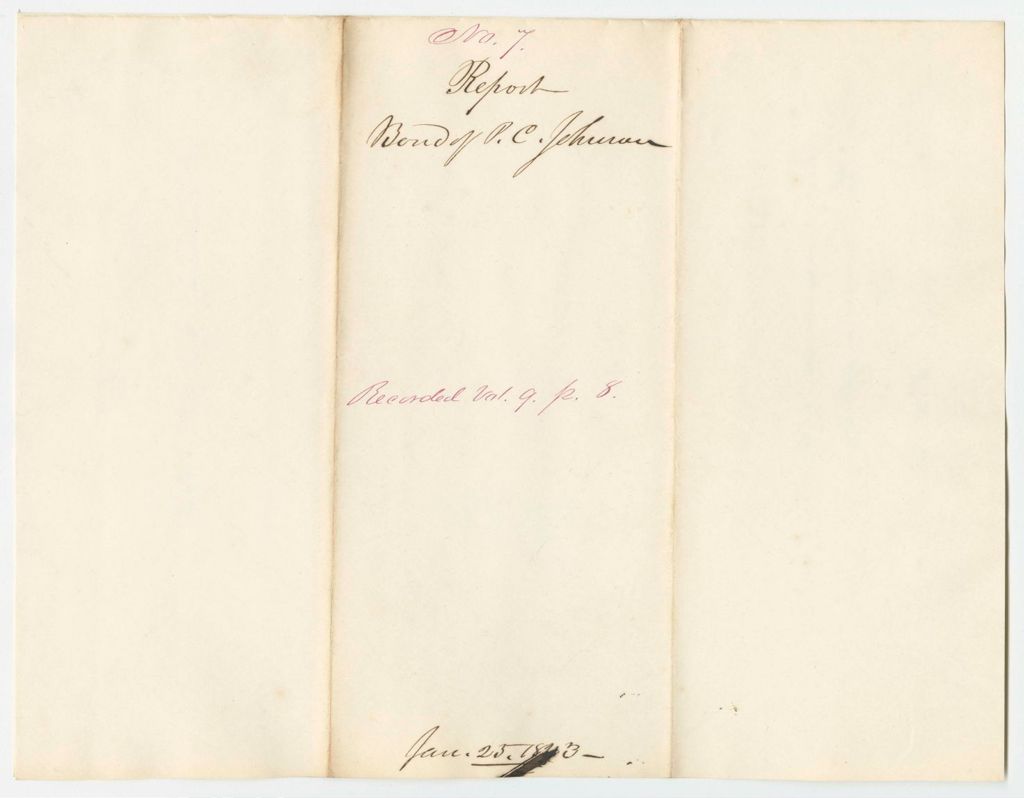 No. 7.
Report
Bond of P. C. Johnson
Recorded Vol. 9. p. 8.
Jan. 25. 1843 –